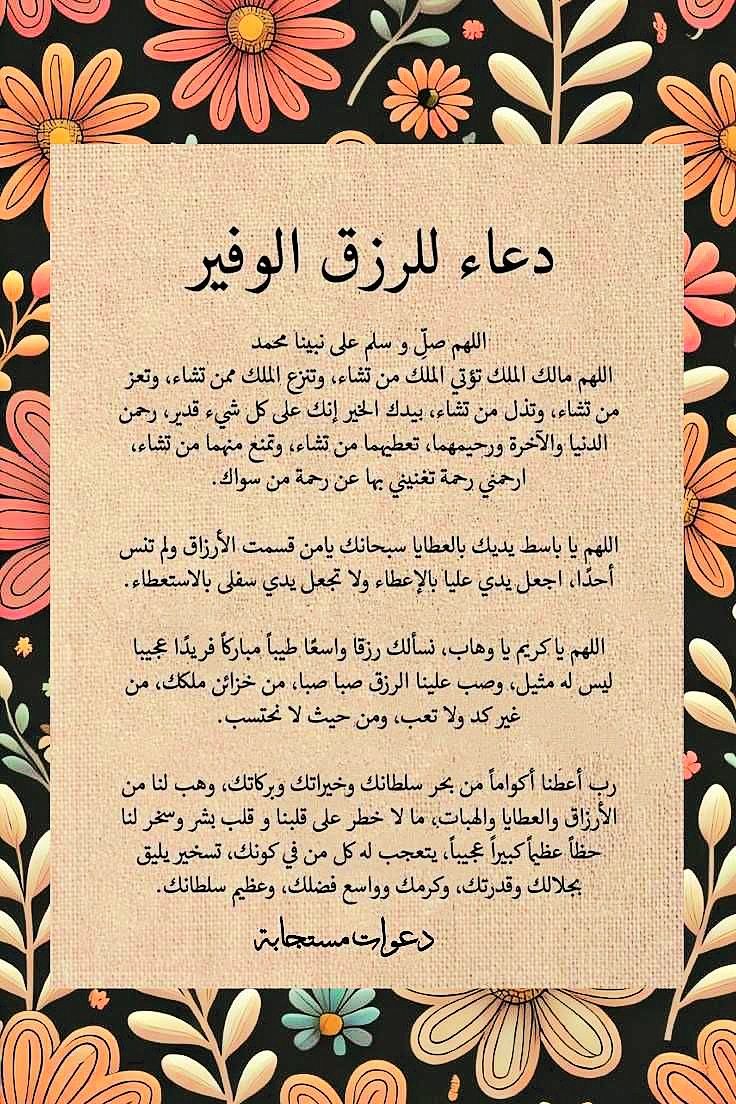 دعاء للرزق الوفير
اللهم صلِّ و سلم على نبينا محمد
اللهم مالك الملك تؤتي الملك من تشاء، وتنزع الملك ممن تشاء، وتعز
من تشاء، وتذل من تشاء، بيدك الخير إنك على كل شيء قدير، رحمن
الدنيا والآخرة ورحيمهما، تعطيهما من تشاء، وتمنع منهما من تشاء،
ارحمني رحمة تغنيني بها عن رحمة من سواك.
اللهم يا باسط يديك بالعطايا سبحانك يامن قسمت الأرزاق ولم تنس
أحدًا، اجعل يدي عليا بالإعطاء ولا تجعل يدي سفلى بالاستعطاء.
اللهم يا كريم يا وهاب، نسألك رزقا واسعًا طيباً مباركاً فريدًا عجيبا
ليس له مثيل، وصب علينا الرزق صبا صبا، من خزائن ملكك، من
غير كد ولا تعب، ومن حيث لا نحتسب.
رب أعطَنا أكواماً من بحر سلطانك وخيراتك وبركاتك، وهب لنا من
الأرزاق والعطايا والهبات، ما لا خطر على قلبنا و قلب بشر وسخر لنا
حظاً عظيماً كبيراً عجيباً، يتعجب له كل من في كونك، تسخير يليق
بجلالك وقدرتك، وكرمك وواسع فضلك، وعظيم سلطانك.
دعوات مستجابة